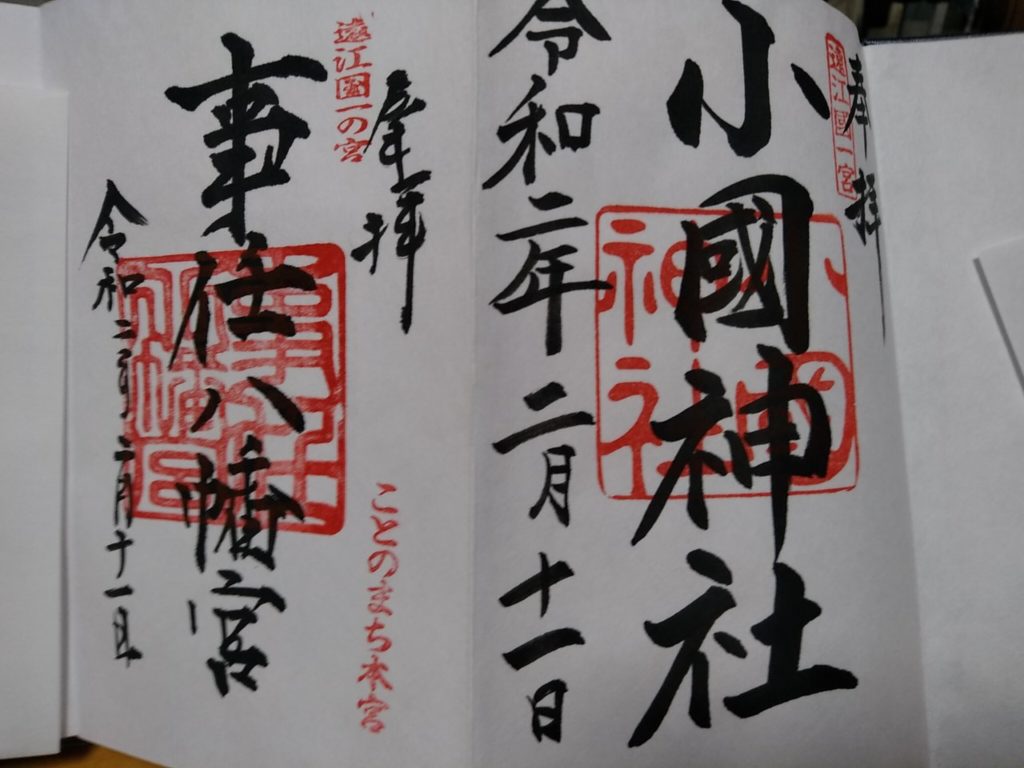 奉拝
遠江國一宮
小國神社
小國神社
令和二年二月十一日
奉拝
遠江国一の宮
ことのまち本宮
事任八幡宮
令和二年二月十一日